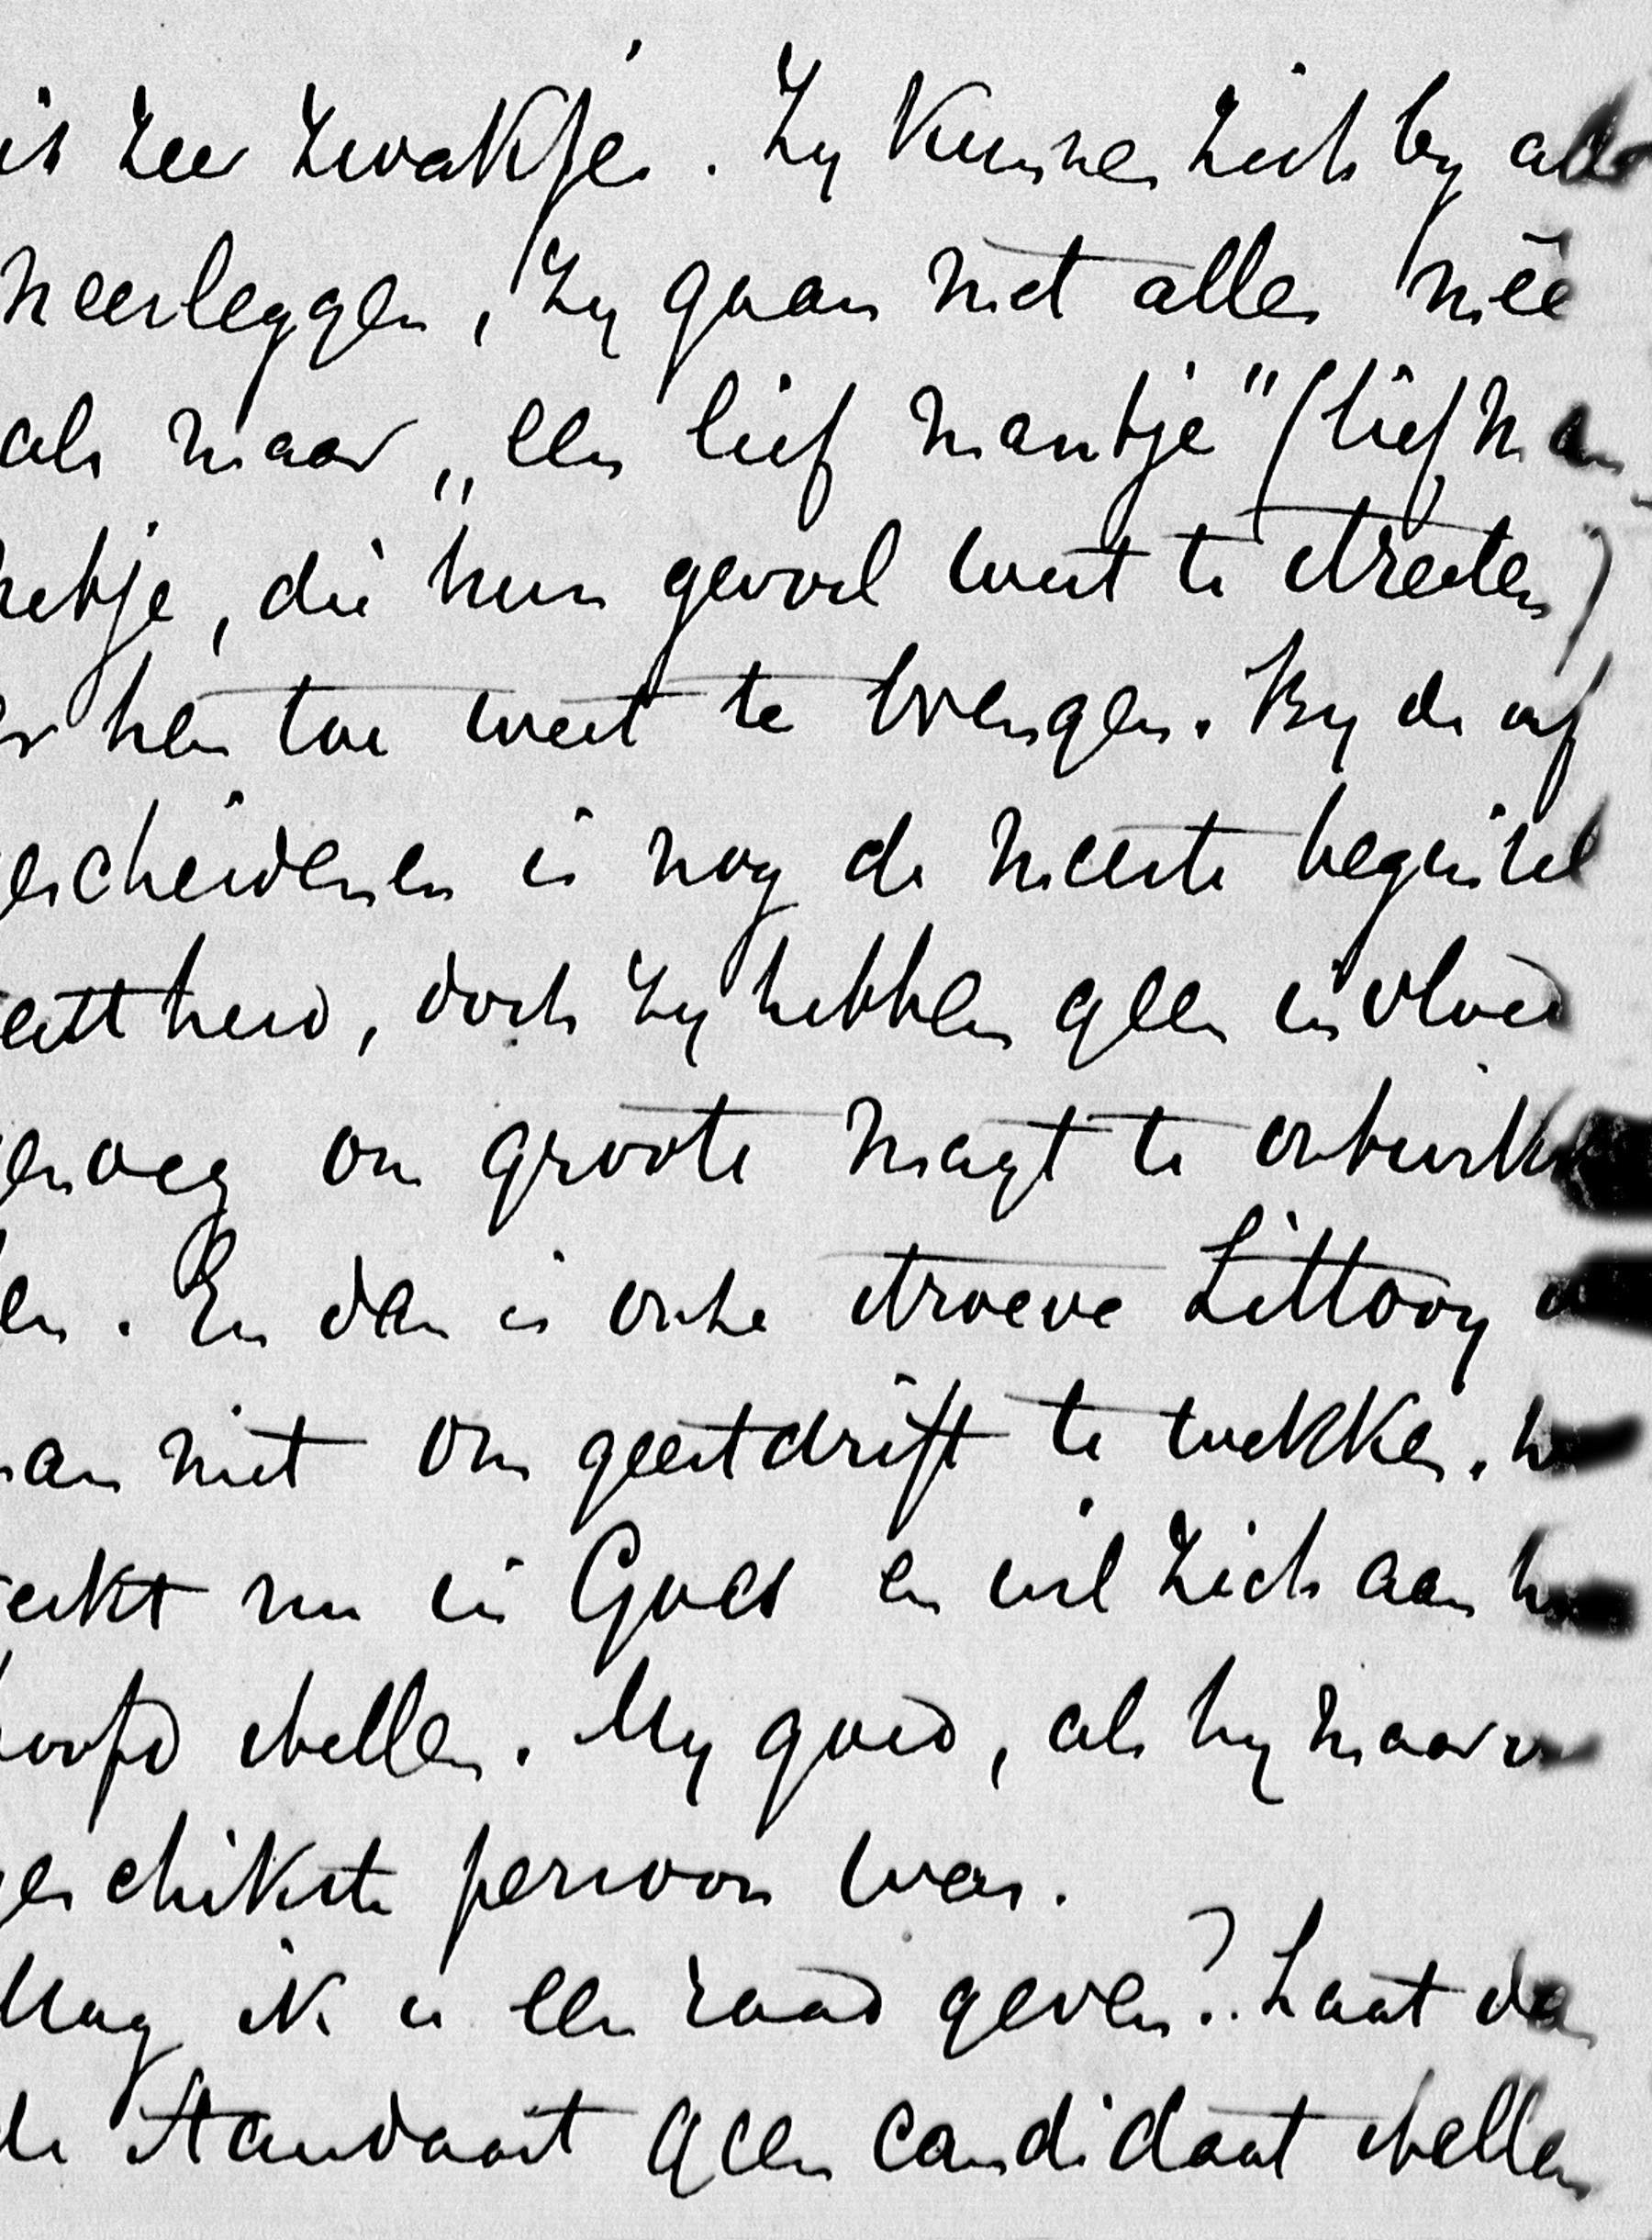 is zeer zwakjes. Zy kunnen zich by alles
neerleggen, zy gaan met alles meê
als maar „een lief mantje" (lief man
netje, die hun gevoel weet te streelen)
er hen toe weet te brengen. By de af
gescheidenen is nog de meeste beginsel
vastheid, doch zy hebben geen invloed
genoeg om groote magt te ontwikke
len. En dan is onze stroeve Littooy
man niet om geestdrift te wekken.
werkt nu in Goes en wil zich aan
hoofd stellen. My goed, als hy maar
geschikste persoon was.
Mag ik u een raad geven? Laat
de Standaart geen candidaat stellen